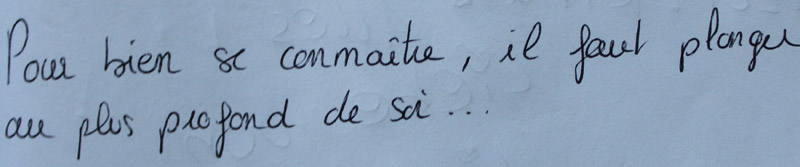 Pour bien se connaître, il faut plonger
au plus profond de soi...